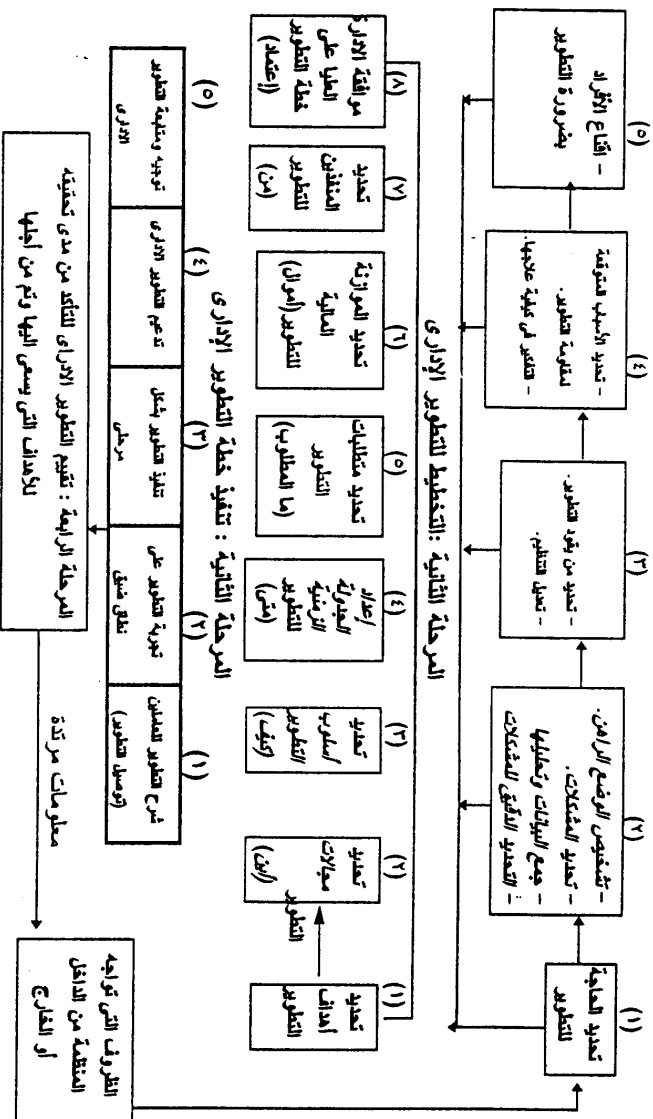 (١)
تحديد الحاجة
للتطوير
(٢)
- تشخيص الوضع الراهن.
- تحديد المشكلات.
- جمع البيانات وتحليلها
- التحديد الدقيق للمشكلات
(٣)
- تحديد من يقود التطوير.
- تعديل التنظيم.
(٤)
- تحديد الأسباب المتوقعة
لمقاومة التطوير.
- التفكير فى كيفية علاجها.
(٥)
- اقناع الأفراد
بضرورة التطوير
المرحلة الثانية :التخطيط للتطوير الإدارى
(١)
تحديد
أهداف
التطوير
(٢)
تحديد
مجالات
التطوير
(اين)
(٣)
تحديد
اسلوب
التطوير
(كيف)
(٤)
إعداد
الجدولة
الزمنية
للتطوير
(متى)
(٥)
تحديد متطلبات
التطوير
(ما المطلوب)
(٦)
تحديد الموازنة
المالية
للتطوير(أموال)
(٧)
تحديد
المنفذين
للتطوير
(من)
(٨)
موافقة الادارة
العليا على
خطة التطوير
(إعتماد)
المرحلة الثانية : تنفيذ خطة التطوير الإدارى
(١)
شرح التطوير للعاملين
(توصيل التطوير)
(٢)
تجربة التطوير على
نطاق ضيق
(٣)
تنفيذ التطوير بشكل
مرحلى
(٤)
تدعيم التطوير الادارى
(٥)
توجيه ومتابعة التطوير
الادارى
المرحلة الرابعة : تقييم التطوير الادراى للتأكد من مدى تحقيقه
للأهداف التى يسعى اليها وتم من أجلها
معلومات مرتدة
الظروف التى تواجه
المنظمة من الداخل
أو الخارج